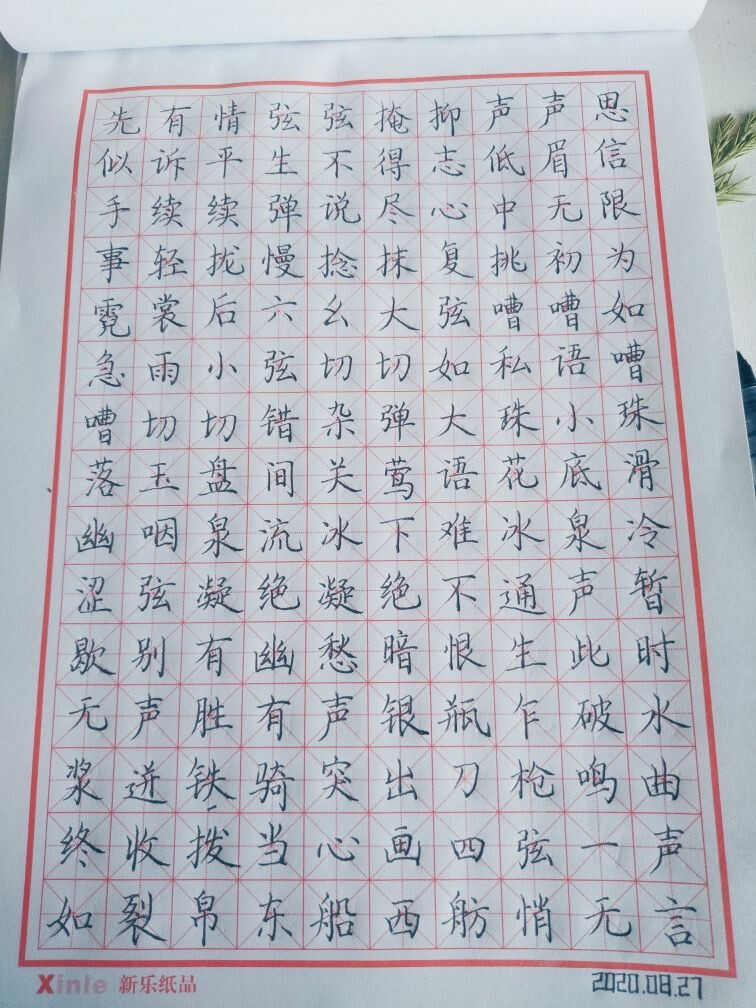 先有情弦弦掩抑声声思
似诉平生不得志低眉信
手续续弹说尽心中无限
事轻拢慢捻抹复挑初为
霓裳后六幺大弦嘈嘈如
急雨小弦切切如私语嘈
嘈切切错杂弹大珠小珠
落玉盘间关莺语花底滑
幽咽泉流冰下难冰泉冷
涩弦凝绝凝绝不通声暂
歇别有幽愁暗恨生此时
无声胜有声银瓶乍破水
浆迸铁骑突出刀枪鸣曲
终收拨当心画四弦一声
如裂帛东船西舫悄无言
Xinle 新乐纸品
2020.08.27